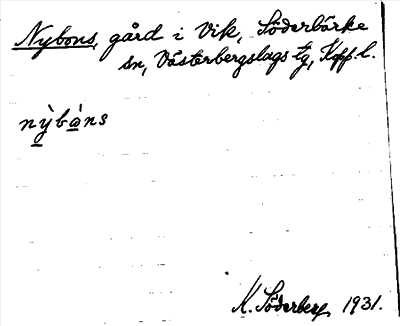 Nybons, gård i Vik, Söderbärke
sn, Västerbergslags tg, Kopp. l.
nỳbàns
K. Söderberg 1931.